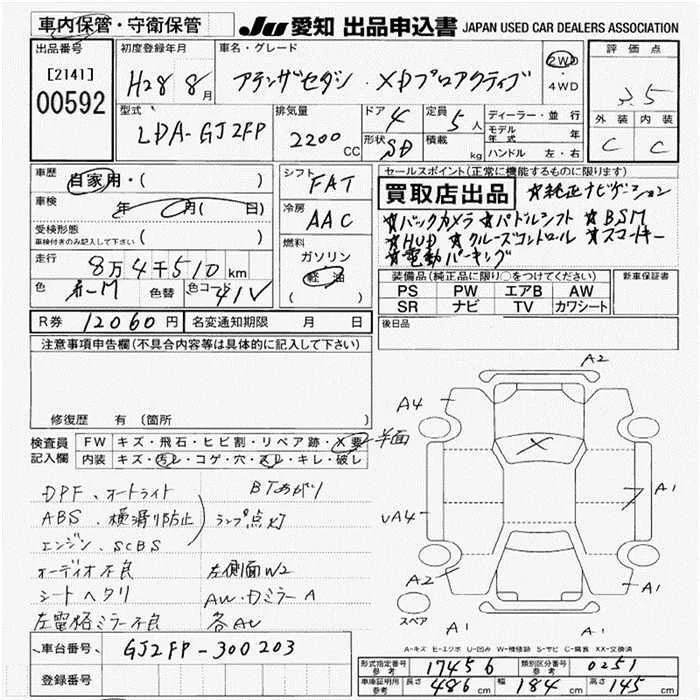 車内保管・守衛保管
JU 愛知 出品申込書 JAPAN USED CAR DEALERS ASSOCIATION
出品番号
[2141]
00592
初度登録年月
H28 8月
車名・グレード
アテンザセダン・XDプロアクティブ
2WD・4WD
評価点
3.5
外装 内装
C C
型式
LDA-GJ2FP
排気量
2200 CC
ドア 4
形状 SD
定員 5人
積載 kg
ディーラー・並行
モデル年式 年
ハンドル 左・右
車歴
自家用・( )
車検
年 月( 日)
受検形態
車検付きのみ記入して下さい ( )
走行
8万4千510km
色 色替 色コード 41V
シフト FAT
冷房 AAC
燃料
ガソリン
軽油
( )
セールスポイント(正常に機能するものに限ります)
買取店出品 ☆純正ナビゲーション
☆バックカメラ ☆パドルシフト ☆BSM
☆HUD ☆クルーズコントロール ☆スマートキー
☆電動パーキング
装備品(純正品に限り○をつけてください)
PS PW エアB AW
SR ナビ TV カワシート
新車保証書
R券 12060円
名変通知期限 月 日
後日品
注意事項申告欄(不具合内容等は具体的に記入して下さい)
修復歴 有(箇所 )
検査員記入欄
FW キズ・飛石・ヒビ割・リペア跡・X要 半面
内装 キズ・汚レ・コゲ・穴・スレ・キレ・破レ
DPF、オートライト BTあがり
ABS、横滑り防止 ランプ点灯
エンジン、SCBS
オーディオ不良 左側面W2
シートヘタリ AW・カミラーA
左電格ミラー不良 各AU
A2
A4
X
A1
VA4
A2
A1
スペア
A1 A1
A-キズ E-エクボ U-凹み W-補修跡 S-サビ C-腐食 XX-交換済
車台番号 GJ2FP-300203
登録番号
形式指定番号参考 17456
類別区分番号参考 0251
車庫証明用参考 長さ 486cm 幅 184cm 高さ 145cm